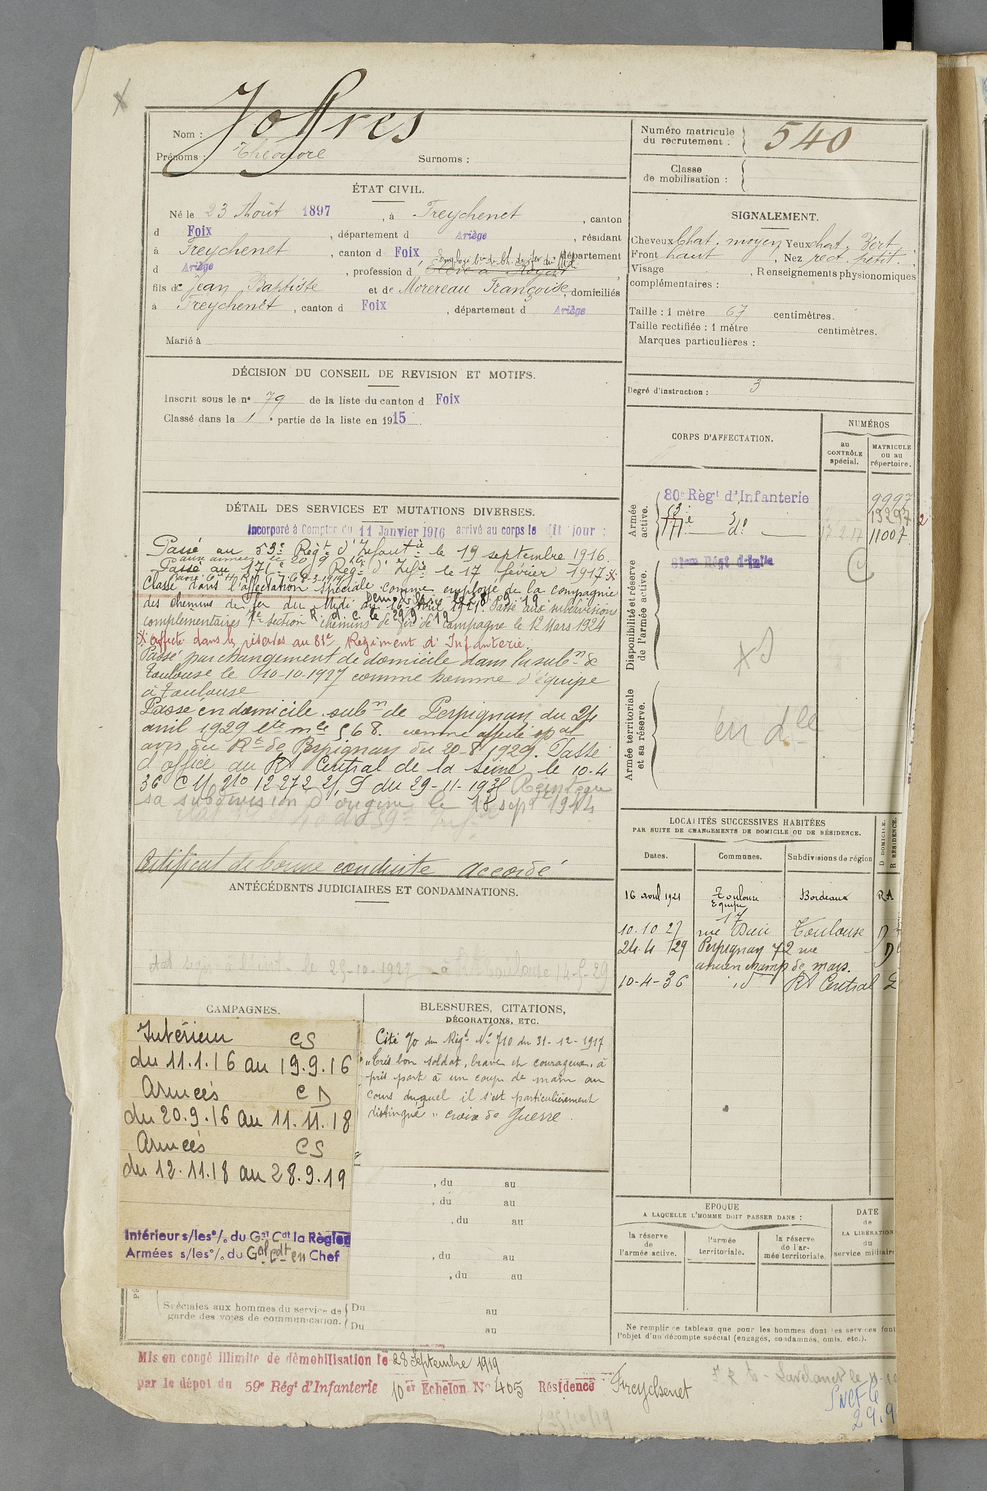 Nom : Joffres
Prénoms : Théodore Surnoms :
Numéro matricule du recrutement : 540
Classe de mobilisation :
ÉTAT CIVIL.
Né le 23 Août 1897, à Freychenet, canton
d Foix, département d Ariège, résidant
à Freychenet, canton d Foix, département
d Ariège, profession d
fils de Jean Baptiste et de Morereau Françoise, domiciliés
à Freychenet, canton d Foix, département d Ariège
Marié à
SIGNALEMENT.
Cheveux Chat. moyen Yeux chat. Vert
Front haut, Nez rect. petit.
Visage, Renseignements physionomiques
complémentaires :
Taille : 1 mètre 67 centimètres.
Taille rectifiée : 1 mètre centimètres.
Marques particulières :
Degré d'instruction : 3
DÉCISION DU CONSEIL DE REVISION ET MOTIFS.
Inscrit sous le n° 79 de la liste du canton d Foix
Classé dans la 1 partie de la liste en 1915.
CORPS D'AFFECTATION.
NUMÉROS
au CONTRÔLE spécial.
MATRICULE ou au répertoire.
Armée active.
80e Règt d'Infanterie 9997
53e d° 13297
171e d° 11007
Disponibilité et réserve de l'armée active.
81eme Régt d'Inf‍ie
Armée territoriale et sa réserve.
DÉTAIL DES SERVICES ET MUTATIONS DIVERSES.
Incorporé à Compter du 11 Janvier 1916 arrivé au corps le dit jour :
Passé au 53e Régt d'Infantie le 19 septembre 1916.
Passé au 171e Régt d'Infie le 17 février 1917
Classé dans l'affectation spéciale comme employé de la compagnie
des chemins de fer du Midi du 16 Avril 1921 Passé aux subdivisions
complémentaires 7e section chemins de fer de campagne le 12 Mars 1924
X affecté dans les réserves au 81e Régiment d'Infanterie.
Passé par changement de domicile dans la subon de
Toulouse le 10-10-1927 comme homme d'équipe
à Toulouse
Passé en domicile subon de Perpignan du 24
avril 1929
avis du Rt de Perpignan du 20-8 1929. Passé
d'office au Rt Central de la Seine le 10-4
36 C M n° 12272 du 29-11-1935 Réintègre
sa subdivision d'origine le 18 sept 1944
Certificat de bonne conduite accordé
LOCALITÉS SUCCESSIVES HABITÉES
PAR SUITE DE CHANGEMENTS DE DOMICILE OU DE RÉSIDENCE.
Dates. Communes. Subdivisions de région D DOMICILE. R RÉSIDENCE.
16 avril 1921 Toulouse Equipe Bordeaux R A
10.10 27 17 rue Toulouse D
24.4 29 Perpignan 72 rue D
ancien champ de mars.
10-4-36 id Rt Central
ANTÉCÉDENTS JUDICIAIRES ET CONDAMNATIONS.
CAMPAGNES.
Intérieur CS
du 11.1.16 au 19.9.16
Armées CD
du 20.9.16 au 11.11.18
Armées CS
du 12.11.18 au 28.9.19
Intérieur s/les °/. du Gal Cdt la Région
Armées s/les °/. du Gal Cdt en Chef
BLESSURES, CITATIONS,
DÉCORATIONS, ETC.
Cité Jo du Régt N° 710 du 31-12-1917
"très bon soldat, brave et courageux, a
pris part à un coup de main au
cours duquel il s'est particulièrement
distingué" croix de Guerre.
, du au
, du au
, du au
, du au
, du au
Spéciales aux hommes du service de garde des voies de communication.
Du au
Du au
EPOQUE
A LAQUELLE L'HOMME DOIT PASSER DANS :
la réserve de l'armée active.
l'armée territoriale.
la réserve de l'armée territoriale.
DATE de LA LIBÉRATION du service militaire
Ne remplir ce tableau que pour les hommes dont les services font
l'objet d'un décompte spécial (engagés, condamnés, omis, etc.).
Mis en congé illimité de démobilisation le 28 Septembre 1919
par le dépôt du 59e Régt d'Infanterie 10er Echelon N° 405 Résidence Freychenet